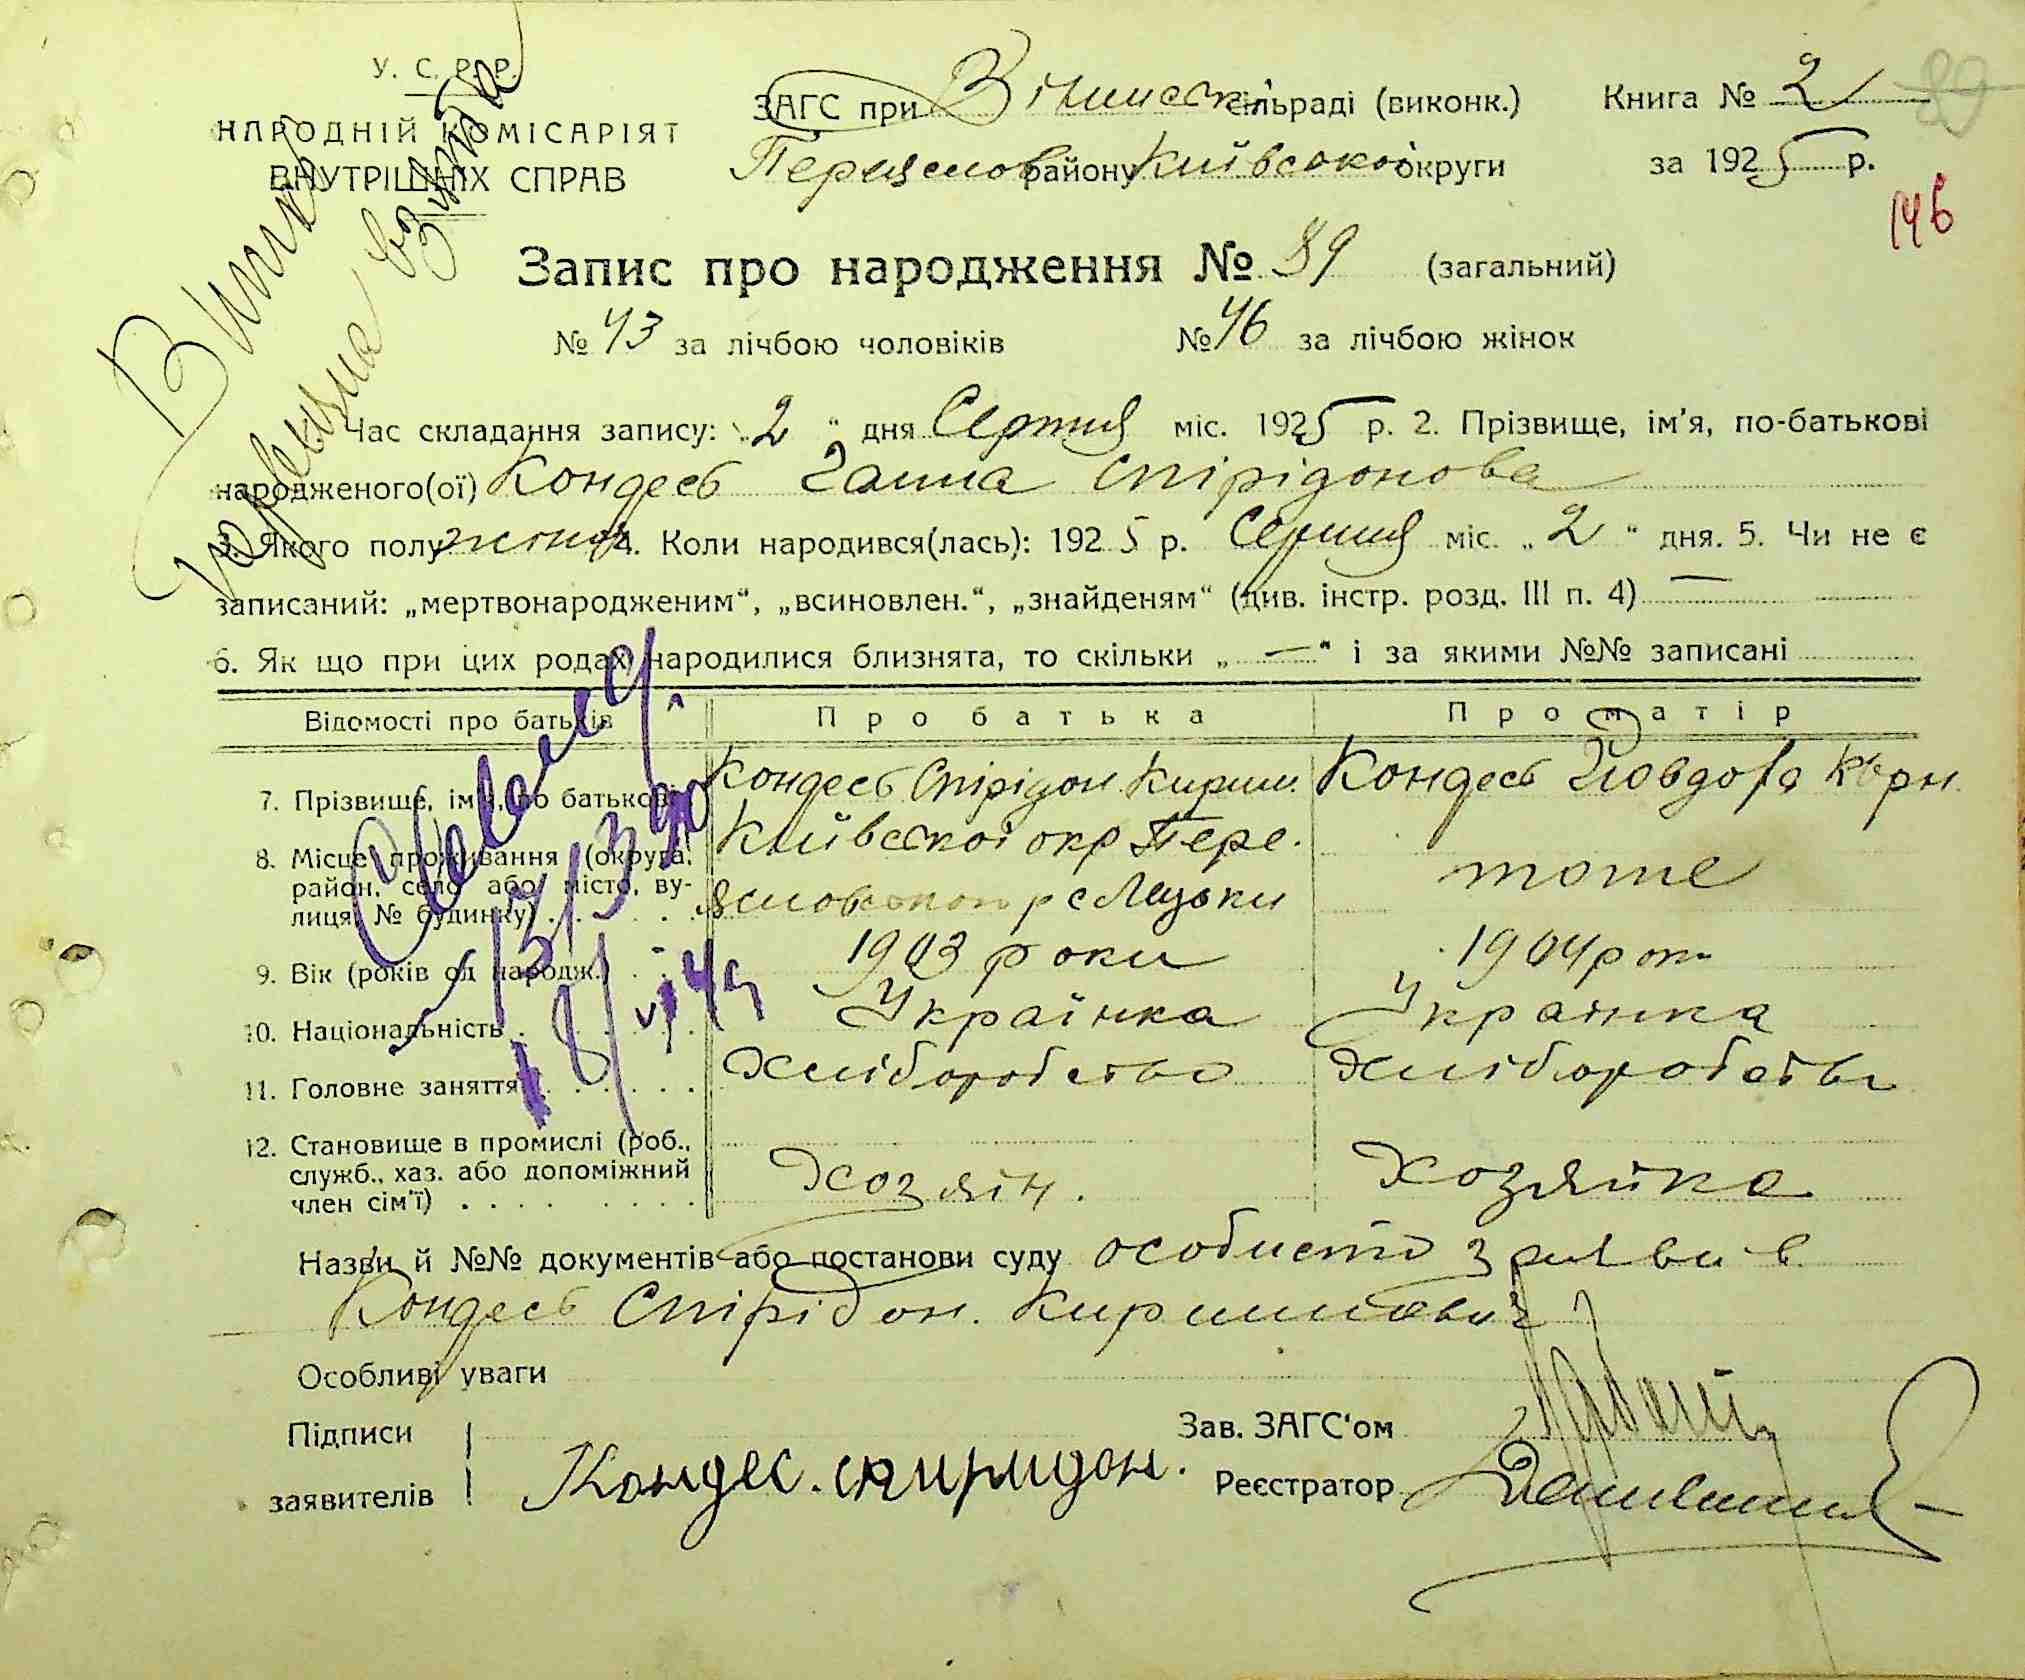 У. С. Р. Р.
НАРОДНІЙ КОМІСАРІЯТ
ВНУТРІШНІХ СПРАВ
ЗАГС при сільраді (виконк.)
району Київської округи
Книга № 2
за 1925 р.
89
146
Запис про народження № 89 (загальний)
№ 43 за лічбою чоловіків № 46 за лічбою жінок
Час складання запису: „2“ дня Серпня міс. 1925 р. 2. Прізвище, ім'я, по-батькові
народженого(ої) Кондесь Ганна Спірідонова
3. Якого полу жіноч 4. Коли народився(лась): 1925 р. Серпня міс. „2“ дня. 5. Чи не є
записаний: „мертвонародженим“, „всиновлен.“, „знайденям“ (див. інстр. розд. III п. 4) —
6. Як що при цих родах народилися близнята, то скільки „—“ і за якими №№ записані
Відомості про батьків Про батька Про матір
7. Прізвище, ім'я, по батькові Кондесь Спірідон Кирил. Кондесь Йовдоха
8. Місце проживання (округа, район, село або місто, вулиця, № будинку) Київської окр Пере- тоже
с Лецьки
9. Вік (років од народж.) 1903 роки 1904 рок
10. Національність Українка Українка
11. Головне заняття Хліборобство Хліборобство
12. Становище в промислі (роб., служб., хаз. або допоміжний член сім'ї) Хозяїн. Хозяйка
Назви й №№ документів або постанови суду особисто заявив
Кондесь Спірідон. Кирилович
Особливі уваги
Підписи
заявителів Кондес. спиридон.
Зав. ЗАГС'ом
Реєстратор